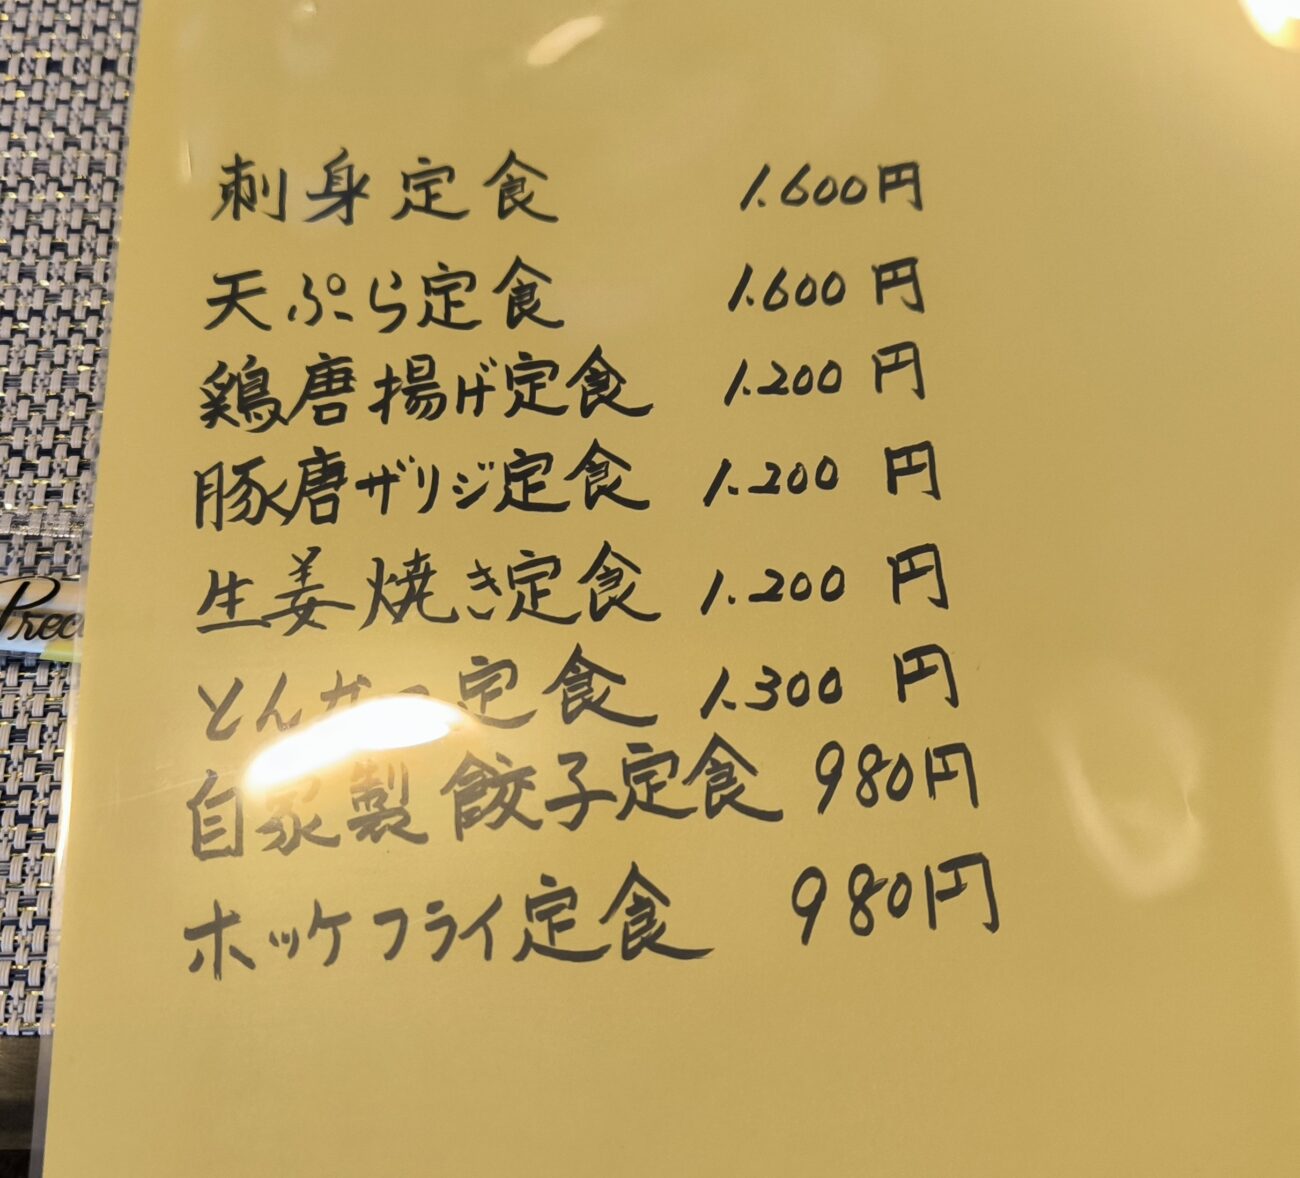 刺身定食 1.600円
天ぷら定食 1.600円
鶏唐揚げ定食 1.200円
豚唐ザリジ定食 1.200円
生姜焼き定食 1.200円
とんかつ定食 1.300円
自家製餃子定食 980円
ホッケフライ定食 980円